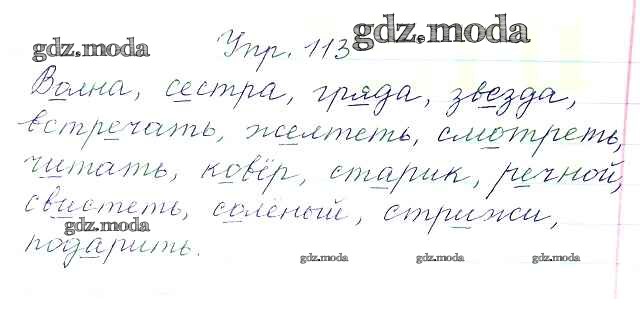 gdz.moda
Упр. 113
gdz.moda
Волна, сестра, гряда, звезда,
встречать, желтеть, смотреть,
читать, ковёр, старик, речной,
свистеть, солёный, стрижи,
gdz.moda
подарить.
gdz.moda gdz.moda gdz.moda